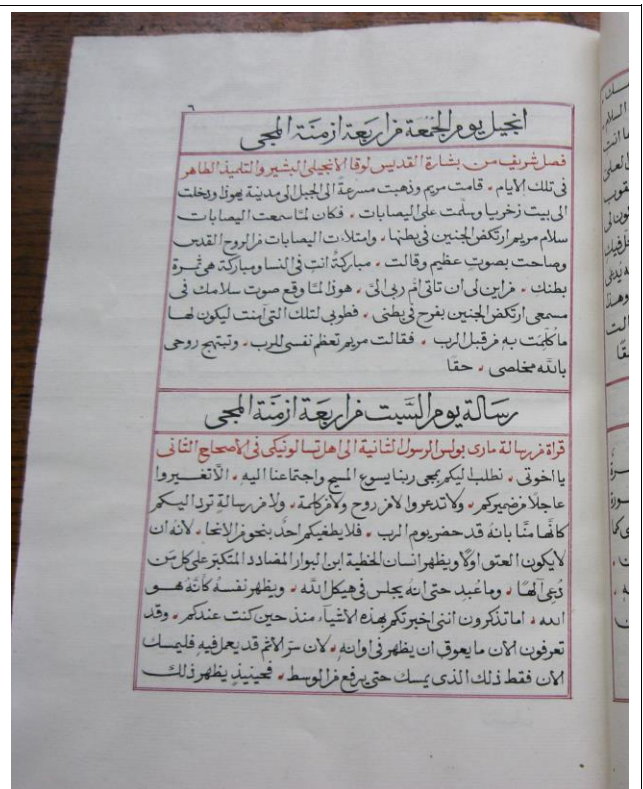 ٦
انجيل يوم الجمعة من اربعة ازمنة المجى
فصل شريف من بشارة القديس لوقا الانجيلى البشير والتلميذ الطاهر
فى تلك الايام . قامت مريم وذهبت مسرعةً الى الجبل الى مدينة يهوذا ودخلت
الى بيت زخريا وسلمت على اليصابات . فكان لمّا سمعت اليصابات
سلام مريم ارتكض الجنين فى بطنها . وامتلاءت اليصابات من الروح القدس
وصاحت بصوت عظيم وقالت . مباركة انتِ فى النسا ومباركة هى ثمرة
بطنك . فمن اين لى ان تاتى امّ ربى الىّ . هوذا لمّا وقع صوت سلامك فى
مسمعى ارتكض الجنين بفرح فى بطنى . فطوبى لتلك التى آمنت ليكون لها
ما كلّمت به من قبل الرب . فقالت مريم تعظم نفسى للرب . وتبتهج روحى
بالله مخلصى . حقًا
رسالة يوم السَّبت من اربعة ازمنة المجى
قراة من رسالة مارى بولس الرسول الثانية الى اهل تسالونيكى فى الاصحاح الثانى
يا اخوتى . نطلب اليكم بمجى ربنا يسوع المسيح واجتماعنا اليه . الّا تغسيروا
عاجلًا من ضميركم . ولا تدعروا لا من روح ولا من كلمة . ولا من رسالةٍ ترد اليكم
كانّها منّا بانه قد حضر يوم الرب . فلا يطغيكم احدٌ بنحوٍ من الانحا . لانه ان
لا يكون العتو اولًا ويظهر انسان الخطية ابن البوار المضادد المتكبّر على كل من
دُعى آلهًا . وما عُبد حتى انه يجلس فى هيكل الله . ويظهر نفسهُ كانّهُ هو
الله . اما تذكرون اننى اخبرتكم بهذه الاشياء منذ حين كنت عندكم . وقد
تعرفون الان ما يعوق ان يظهر فى اوانه . لان سرّ الاثم قد يعمل فيه فليمسك
الان فقط ذلك الذى يمسك حتى يرفع من الوسط . فحينيذٍ يظهر ذلك